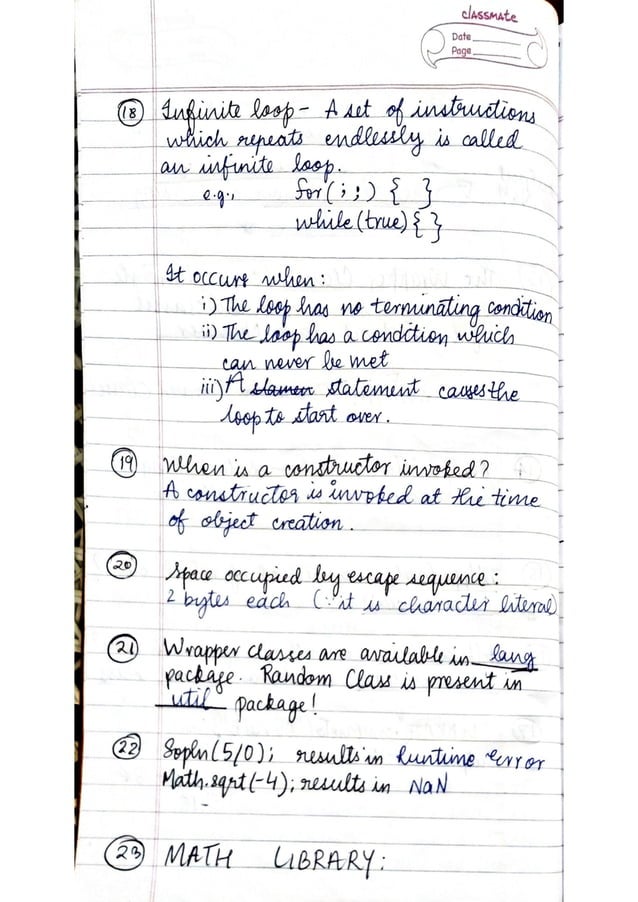 classmate
Date
Page
18 Infinite loop - A set of instructions
which repeats endlessly is called
an infinite loop.
e.g., for(;;) { }
while(true){ }
It occurs when:
i) The loop has no terminating condition
ii) The loop has a condition which
can never be met
iii) A statement causes the
loop to start over.
19 When is a constructor invoked?
A constructor is invoked at the time
of object creation.
20 Space occupied by escape sequence:
2 bytes each (∵ it is character literal)
21 Wrapper classes are available in lang
package. Random Class is present in
util package!
22 Sopln(5/0); results in Runtime error
Math.sqrt(-4); results in NaN
23 MATH LIBRARY: